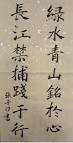 綠水青山銘於心
長江禁捕踐于行
張子沙書